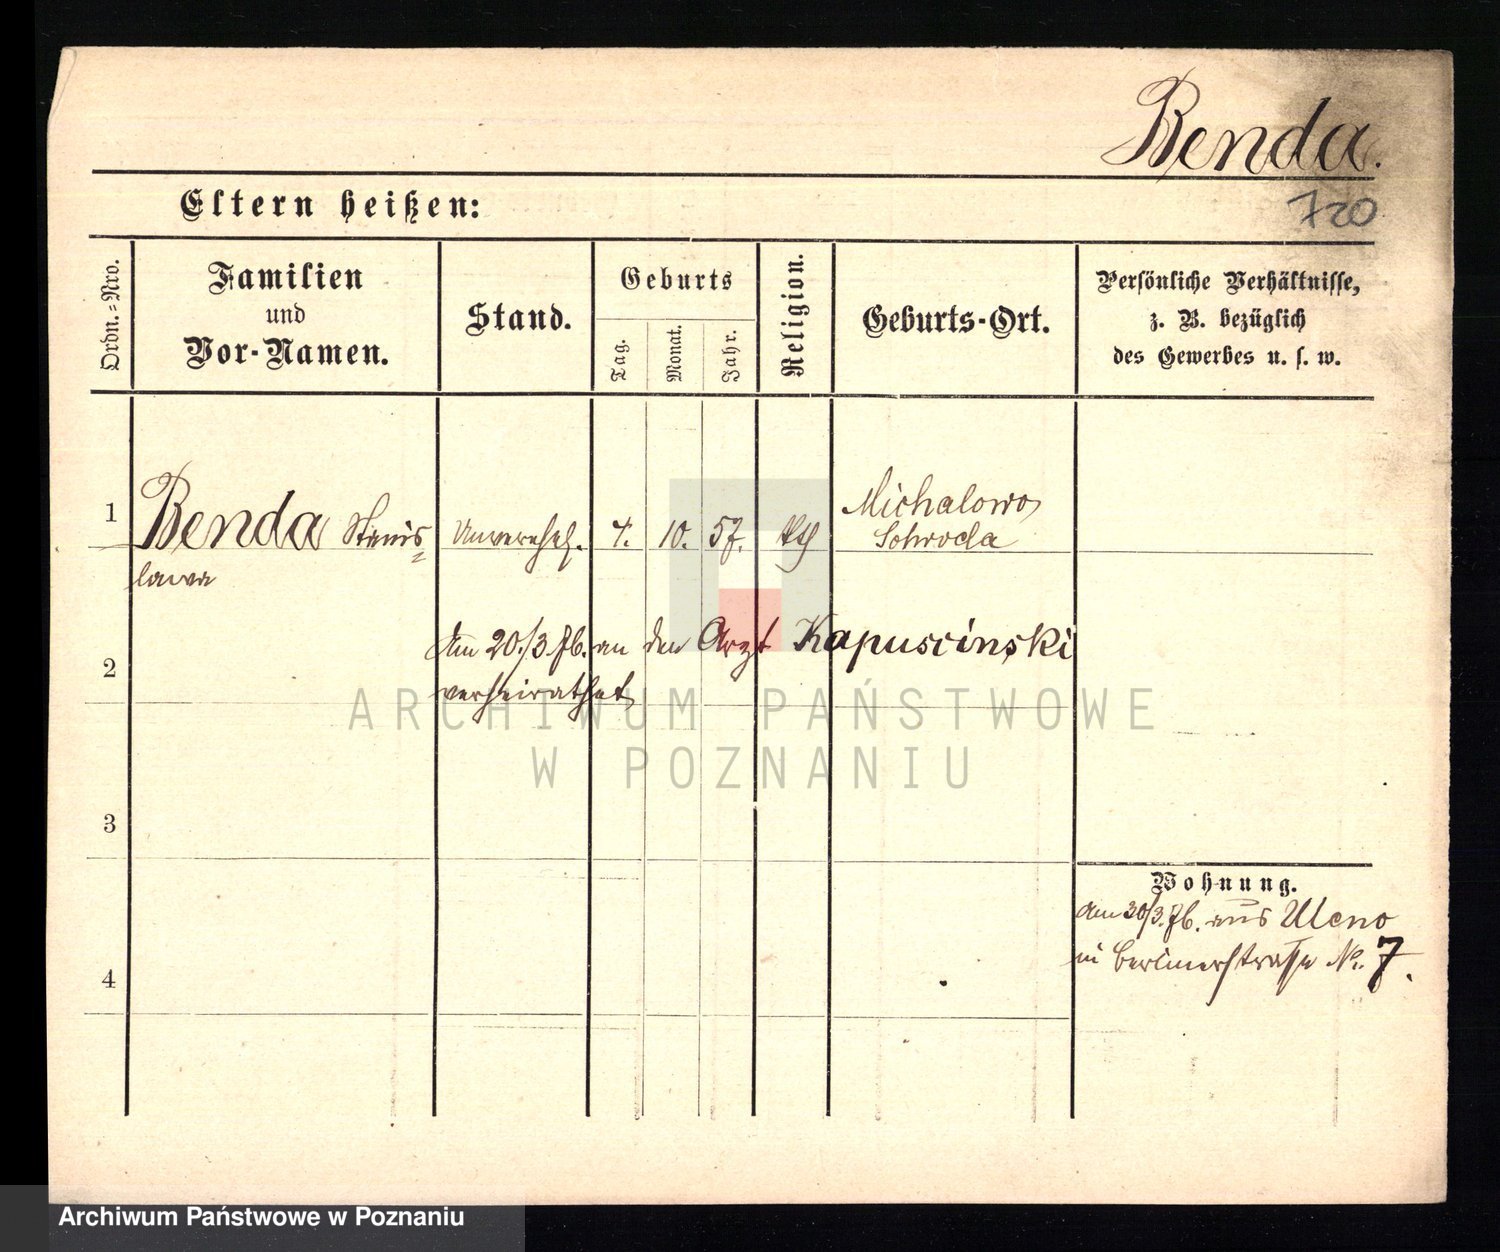 Benda.
720
Eltern heißen:
Ordn.=Nro.
Familien
und
Vor-Namen.
Stand.
Geburts
Tag.
Monat.
Jahr.
Religion.
Geburts-Ort.
Persönliche Verhältnisse,
z. B. bezüglich
des Gewerbes u. s. w.
1
Benda Stanis=
lawa
Unverehel.
4. 10. 57.
Kth
Michalowo
Schroda
2
Am 20./3 76. an den Arzt Kapuscinski
verheirathet
3
4
Wohnung.
Am 30/3. 76. aus
in Berlinerstraße No. 7.
ARCHIWUM PAŃSTWOWE
W POZNANIU
Archiwum Państwowe w Poznaniu